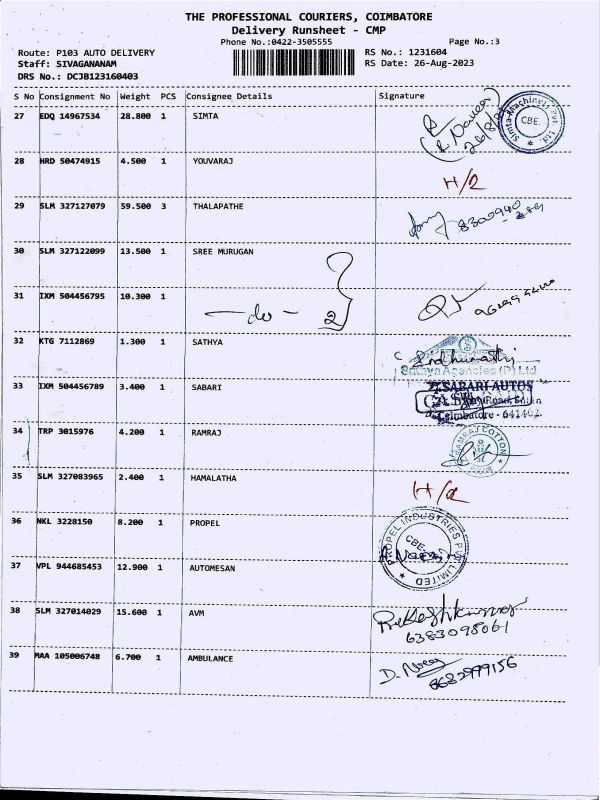 THE PROFESSIONAL COURIERS, COIMBATORE
Delivery Runsheet - CMP
Phone No.:0422-3505555 Page No.:3
Route: P103 AUTO DELIVERY RS No.: 1231604
Staff: SIVAGANANAM RS Date: 26-Aug-2023
DRS No.: DCJB123160403
S No Consignment No Weight PCS Consignee Details Signature
27 EDQ 14967534 28.800 1 SIMTA
Simta Machinery Pvt. Ltd.
CBE.
28 HRD 50474915 4.500 1 YOUVARAJ
H/2
29 SLM 327127079 59.500 3 THALAPATHE
30 SLM 327122099 13.500 1 SREE MURUGAN
31 IXM 504456795 10.300 1
-do- 2
32 KTG 7112869 1.300 1 SATHYA
Sathya Agencies (P) Ltd
33 IXM 504456789 3.400 1 SABARI
SABARI AUTOS
Coimbatore - 641402.
34 TRP 3015976 4.200 1 RAMRAJ
RAMRAJ COTTON
35 SLM 327083965 2.400 1 HAMALATHA
H/2
36 NKL 3228150 8.200 1 PROPEL
PROPEL INDUSTRIES PVT LIMITED
CBE.
37 VPL 944685453 12.900 1 AUTOMESAN
38 SLM 327014029 15.600 1 AVM
6383098061
39 MAA 105006748 6.700 1 AMBULANCE
8682999156